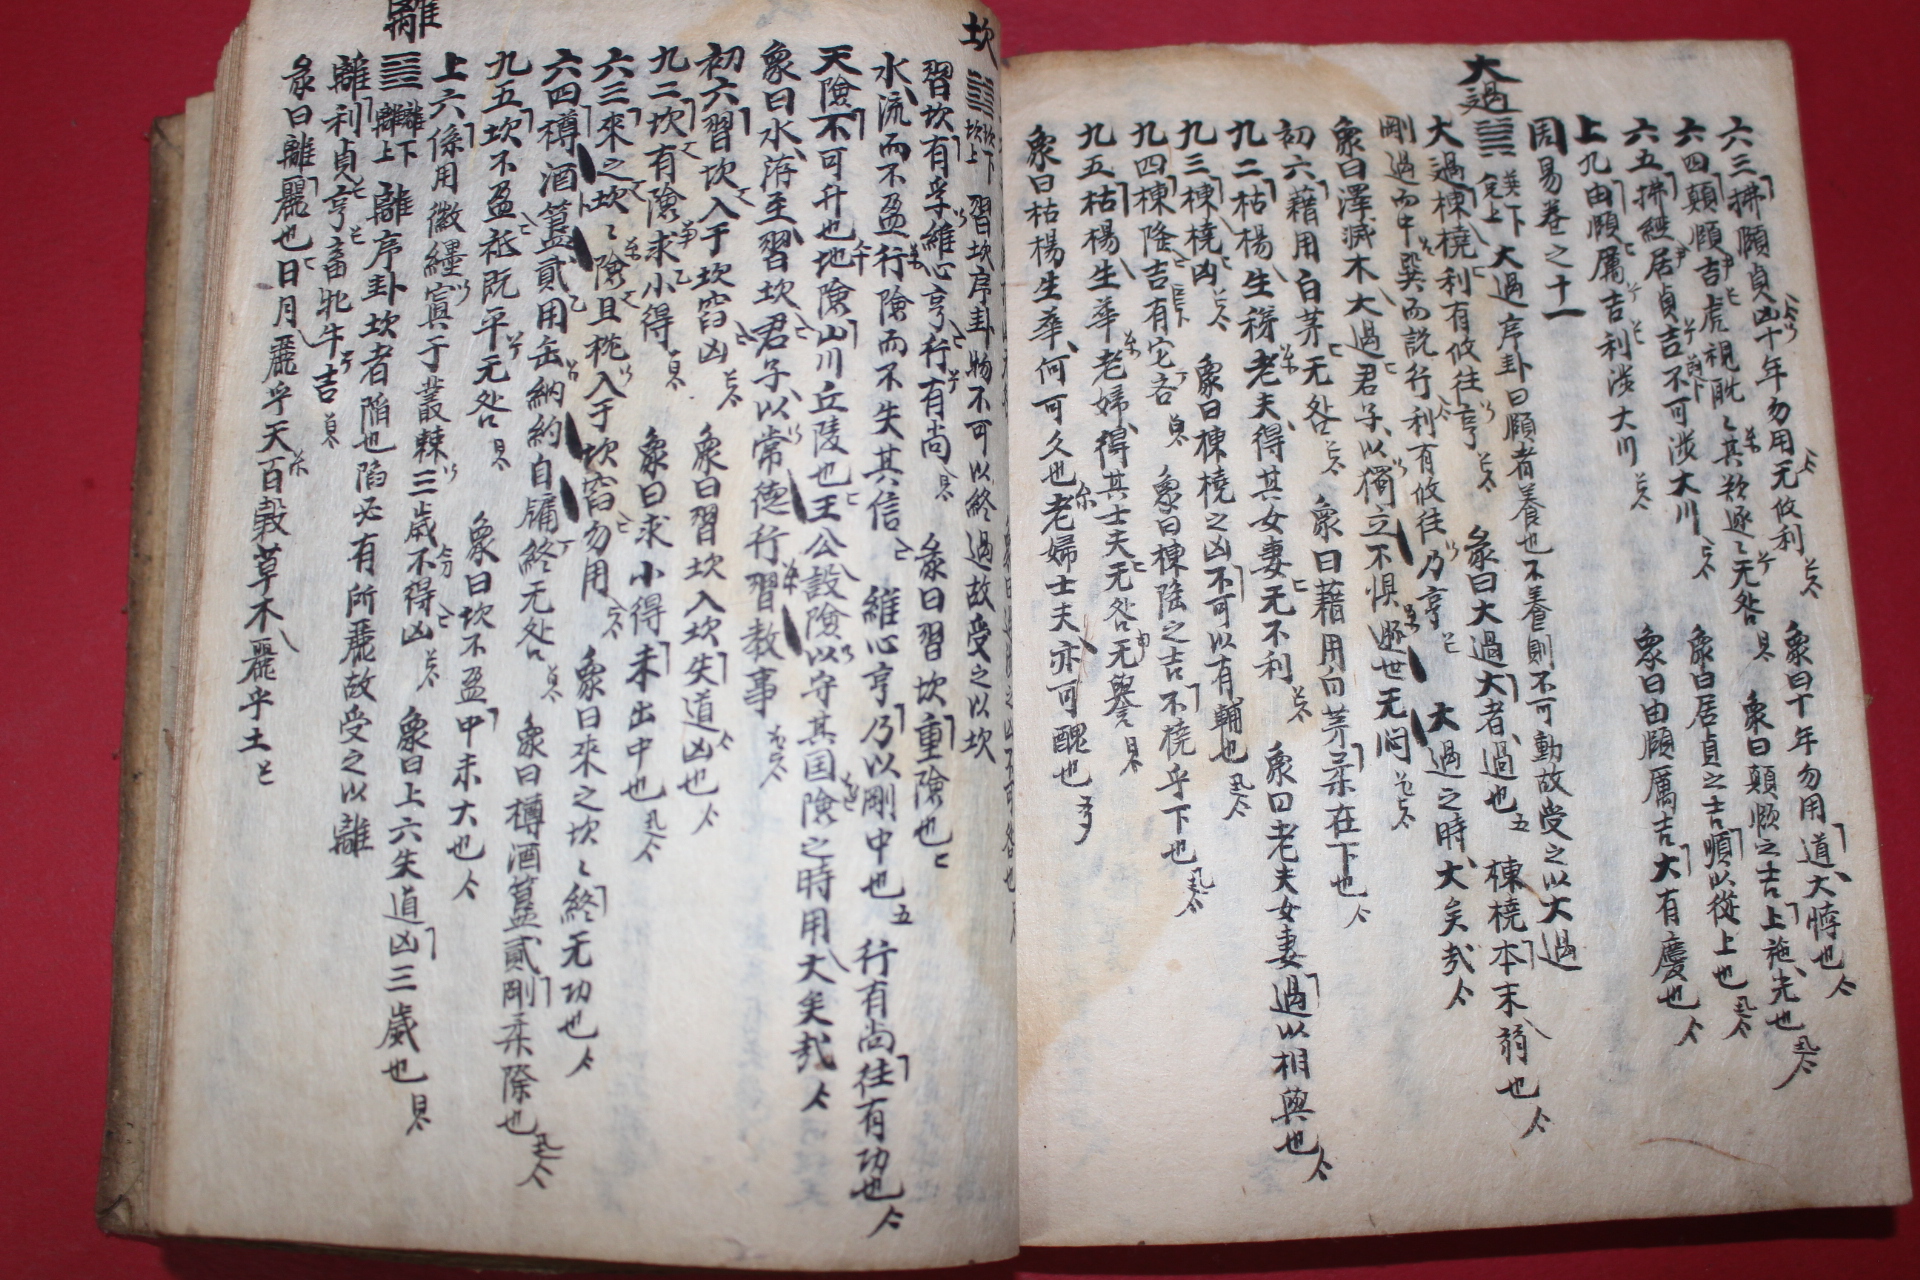 六三拂頤貞凶十年勿用无攸利 象曰十年勿用道大悖也
六四顛頤吉虎視眈〻其欲逐〻无咎 象曰顛頤之吉上施光也
六五拂經居貞吉不可涉大川 象曰居貞之吉順以從上也
上九由頤厲吉利涉大川 象曰由頤厲吉大有慶也
周易卷之十一
大過
巽下兌上 大過序卦曰頤者養也不養則不可動故受之以大過
大過棟橈利有攸往亨 彖曰大過大者過也 棟橈本末弱也
剛過而中巽而說行利有攸往乃亨 大過之時大矣哉
象曰澤滅木大過君子以獨立不惧遯世无悶
初六藉用白茅无咎 象曰藉用白茅柔在下也
九二枯楊生稊老夫得其女妻无不利 象曰老夫女妻過以相與也
九三棟橈凶 象曰棟橈之凶不可以有輔也
九四棟隆吉有它吝 象曰棟隆之吉不橈乎下也
九五枯楊生華老婦得其士夫无咎无譽
象曰枯楊生華何可久也老婦士夫亦可醜也
坎
坎下坎上 習坎序卦物不可以終過故受之以坎
習坎有孚維心亨行有尚 彖曰習坎重險也
水流而不盈行險而不失其信 維心亨乃以剛中也 行有尚往有功也
天險不可升也地險山川丘陵也王公設險以守其国險之時用大矣哉
象曰水洊至習坎君子以常德行習教事
初六習坎入于坎窞凶 象曰習坎入坎失道凶也
九二坎有險求小得 象曰求小得未出中也
六三來之坎〻險且枕入于坎窞勿用 象曰來之坎〻終无功也
六四樽酒簋貳用缶納約自牖終无咎 象曰樽酒簋貳剛柔際也
九五坎不盈祗既平无咎 象曰坎不盈中未大也
上六係用徽纆寘于叢棘三歲不得凶 象曰上六失道凶三歲也
離
離下離上 離序卦坎者陷也陷必有所麗故受之以離
離利貞亨畜牝牛吉
彖曰離麗也日月麗乎天百穀草木麗乎土